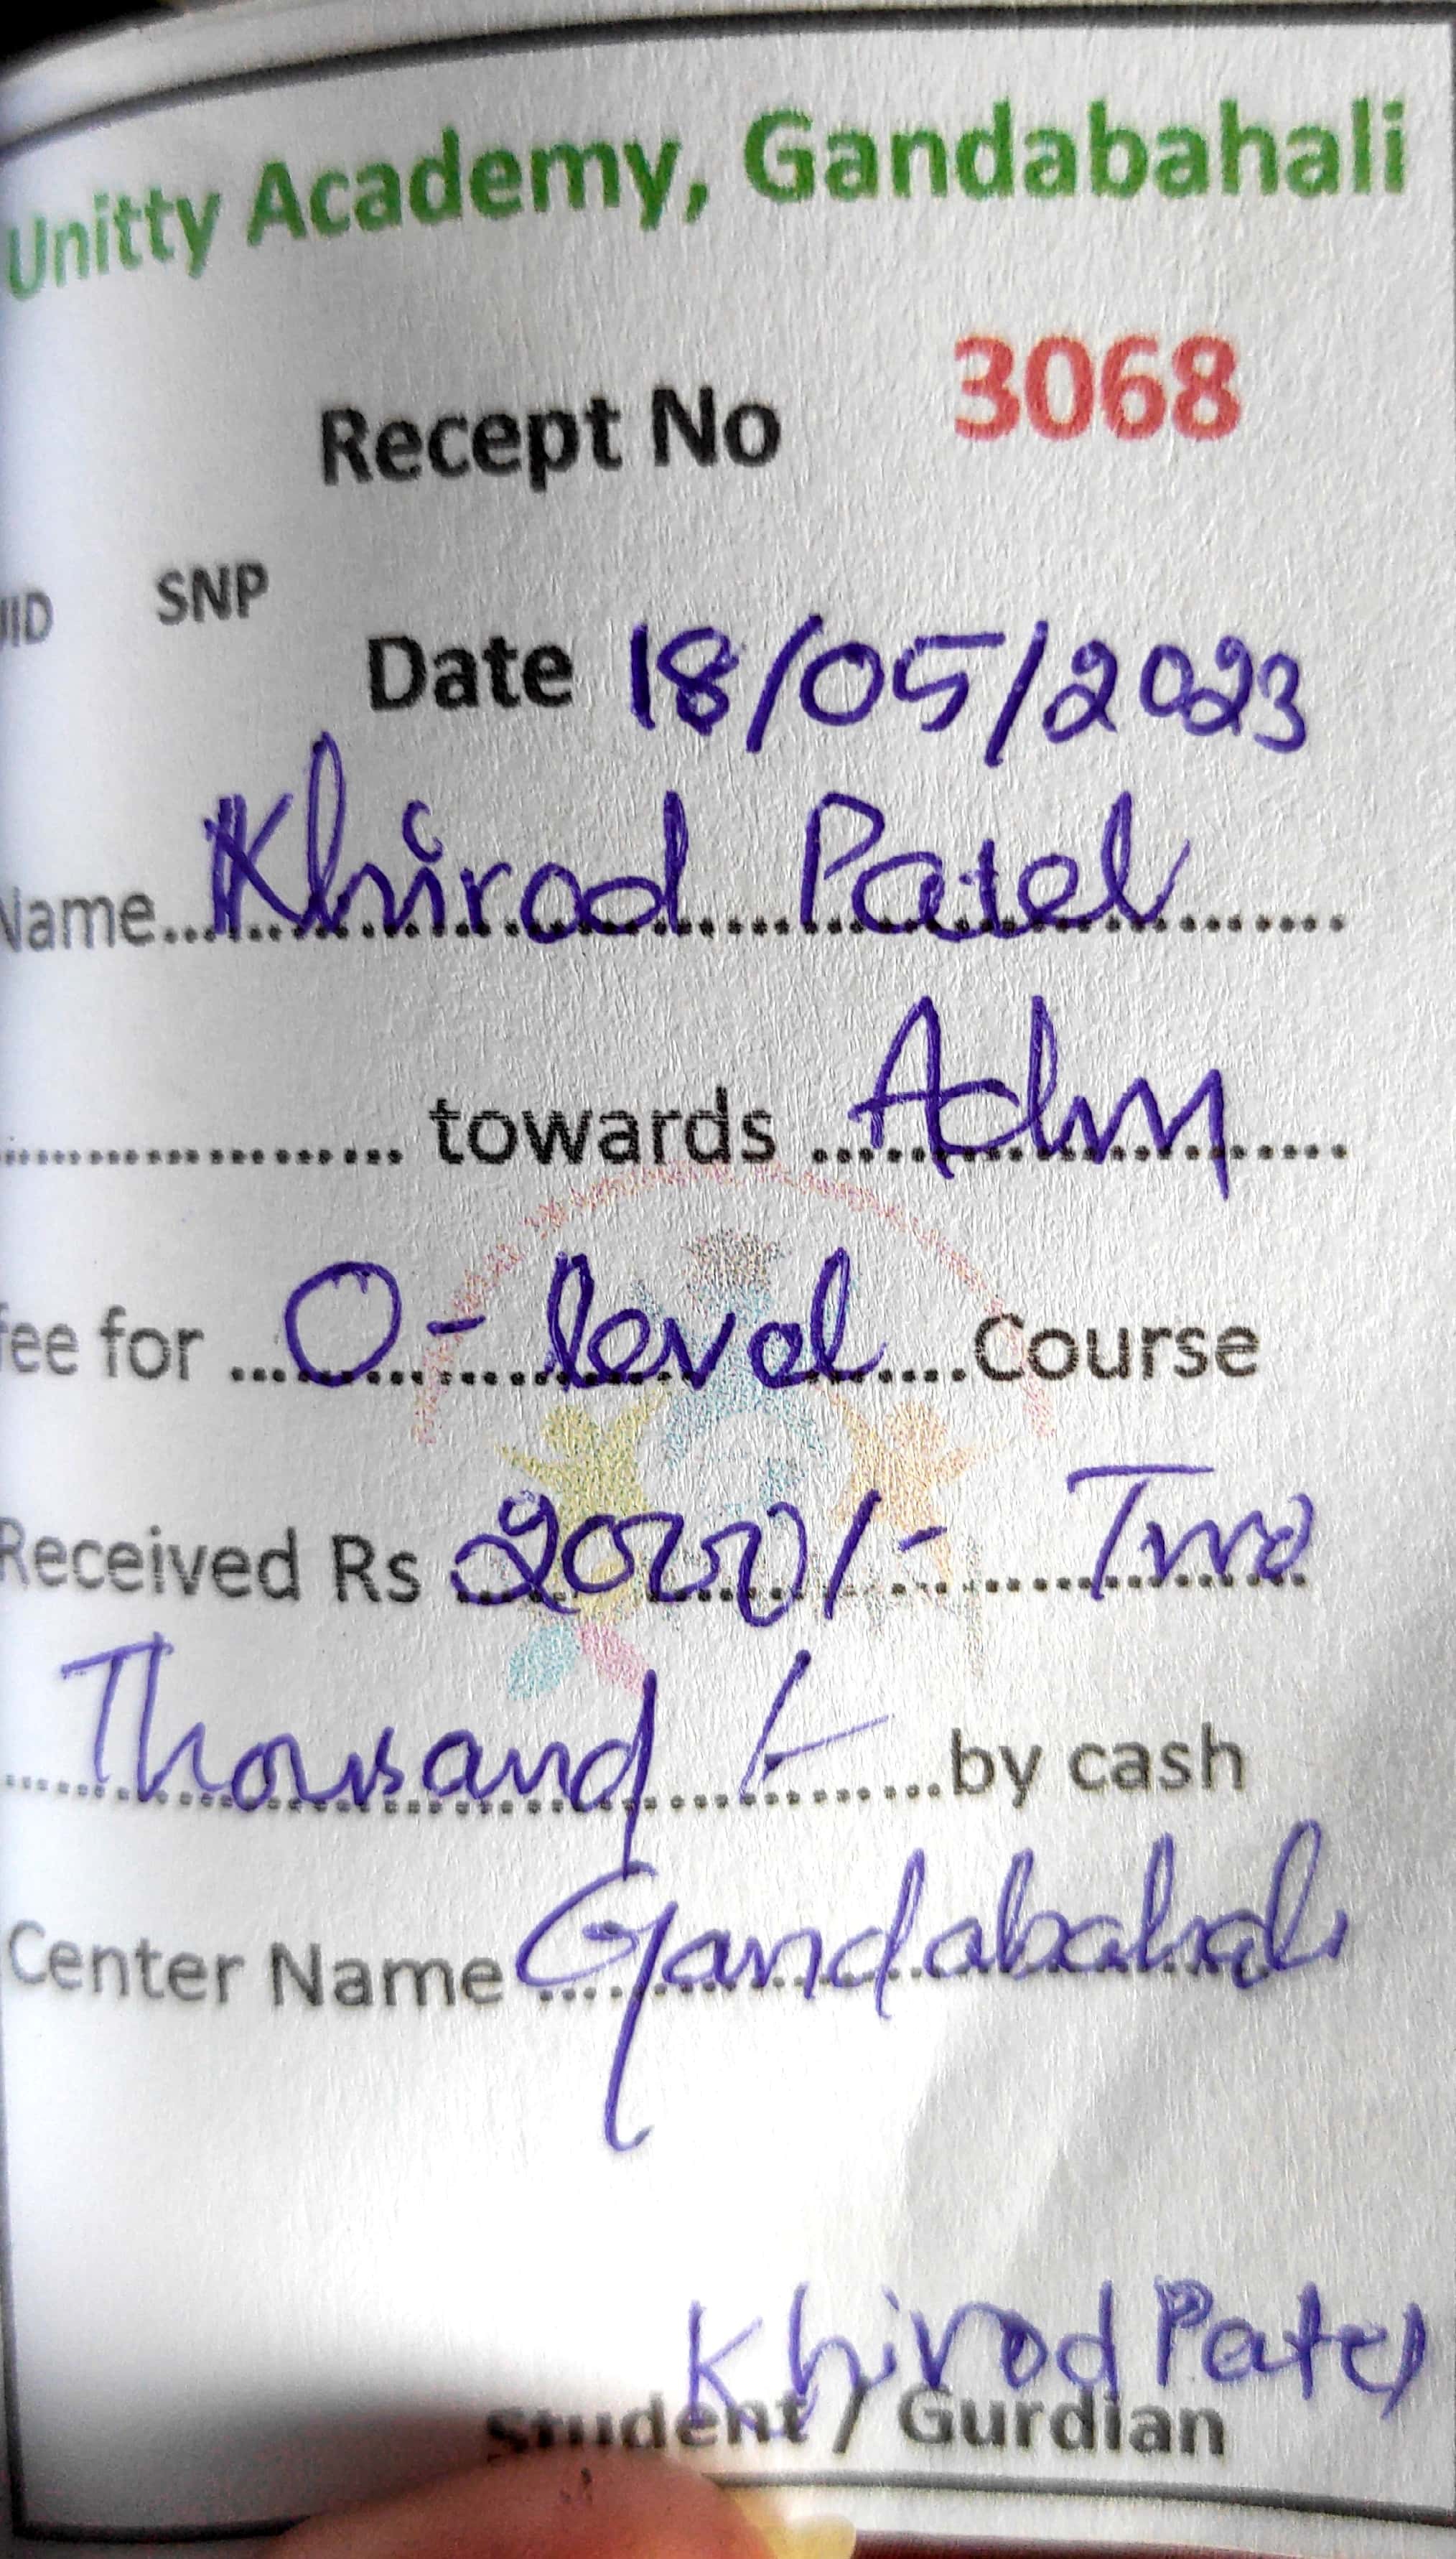 Unitty Academy, Gandabahali
Recept No 3068
SNP
Date 18/05/2023
Name Khirod Patel
towards Adm
fee for O-level Course
Received Rs 2000/- Two
Thousand /- by cash
Center Name Gandabahali
Khirod Patel
Student / Gurdian